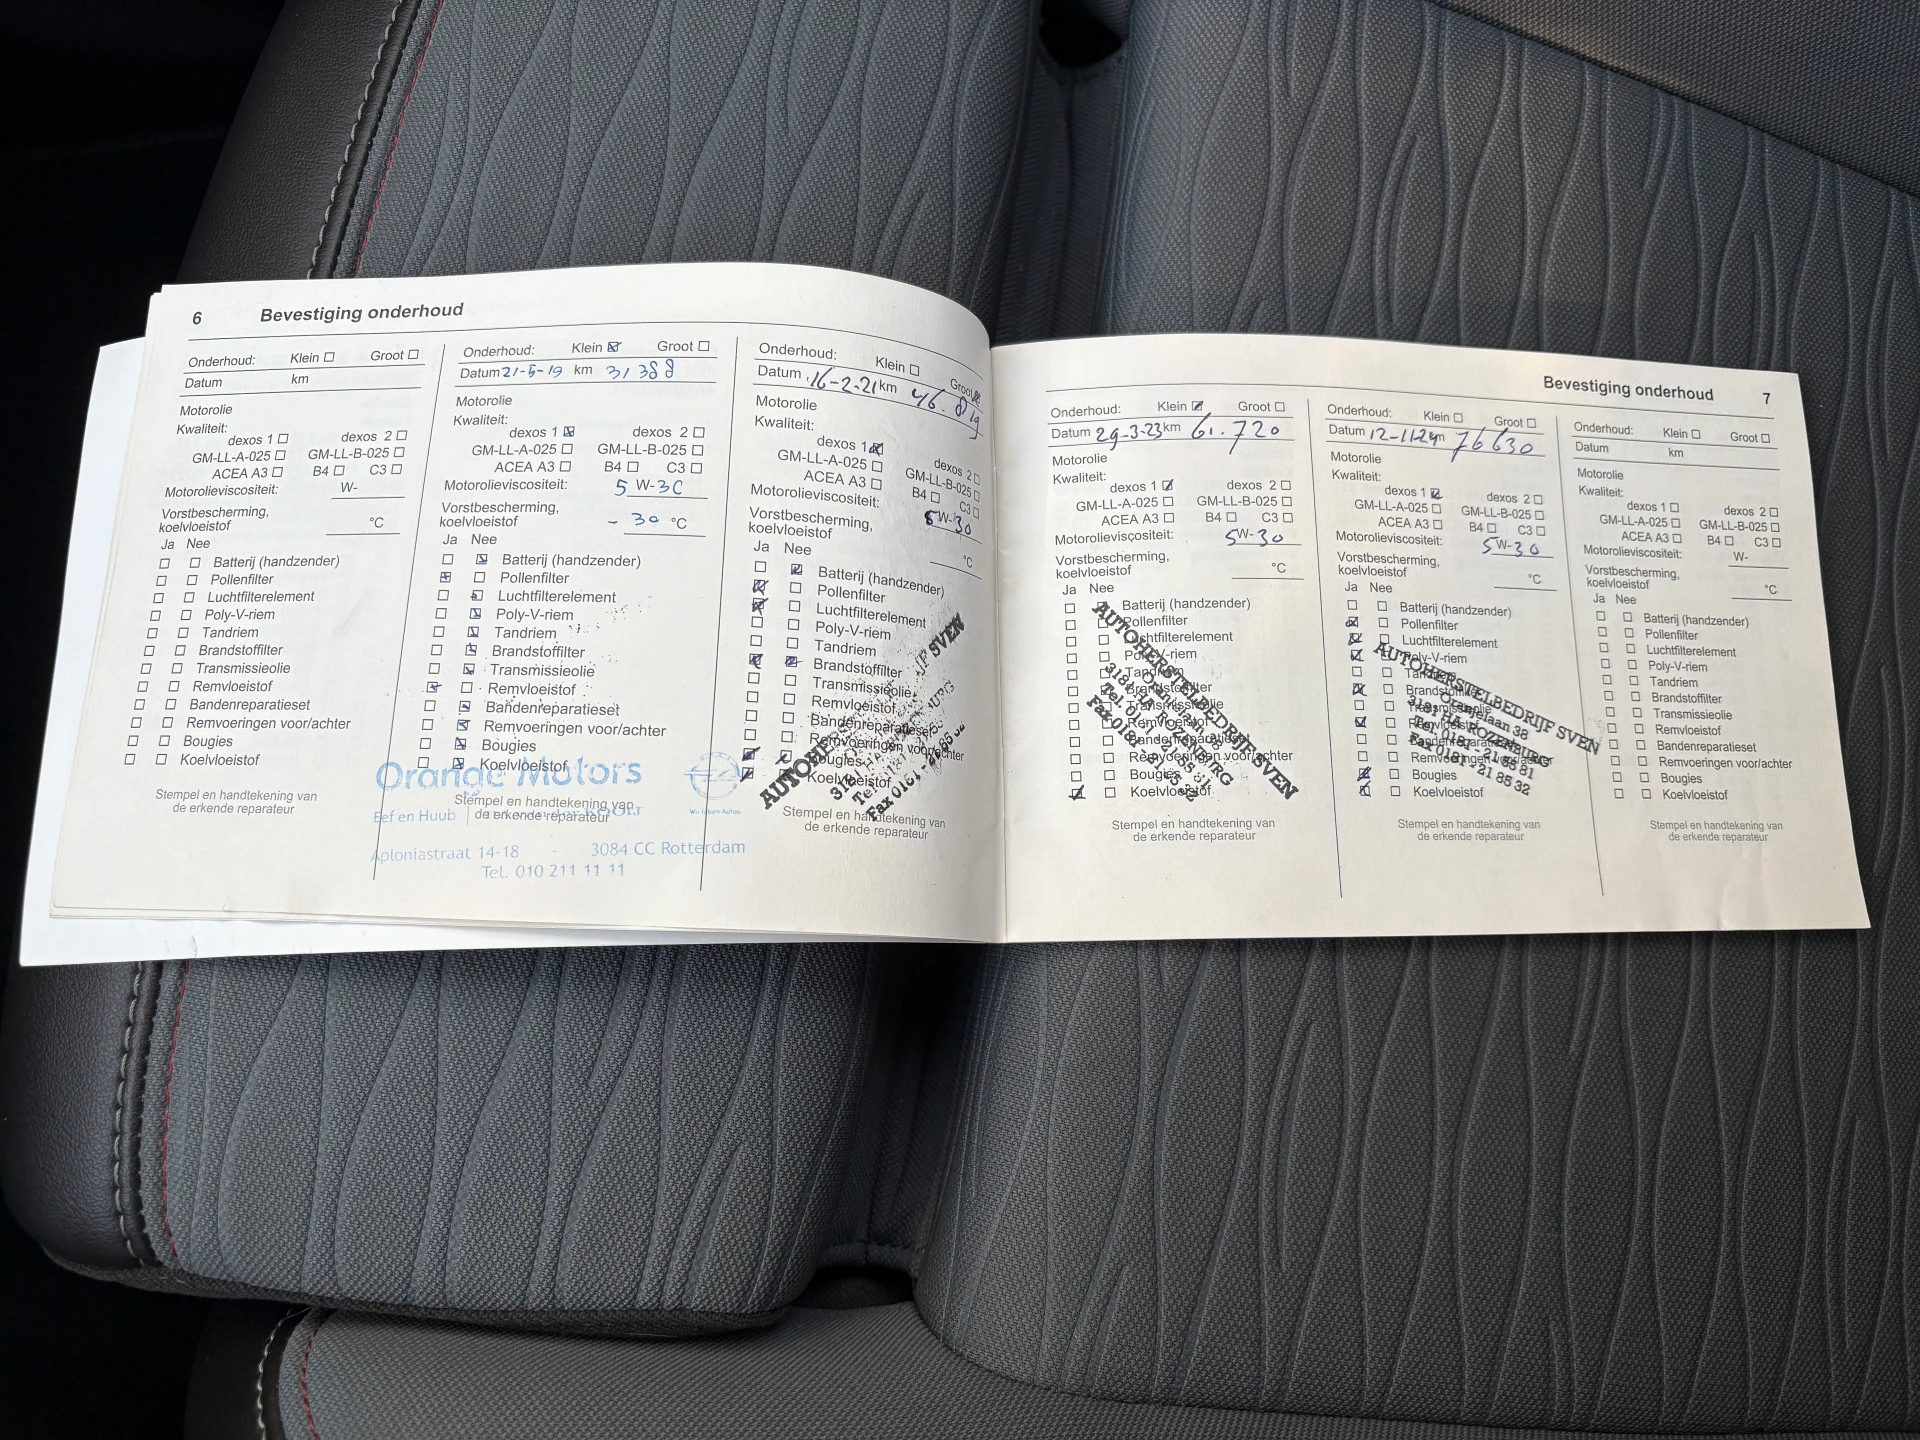 6 Bevestiging onderhoud
Onderhoud: Klein Groot
Datum km
Motorolie
Kwaliteit:
dexos 1 dexos 2
GM-LL-A-025 GM-LL-B-025
ACEA A3 B4 C3
Motorolieviscositeit:
W-
Vorstbescherming,
koelvloeistof °C
Ja Nee
Batterij (handzender)
Pollenfilter
Luchtfilterelement
Poly-V-riem
Tandriem
Brandstoffilter
Transmissieolie
Remvloeistof
Bandenreparatieset
Remvoeringen voor/achter
Bougies
Koelvloeistof
Stempel en handtekening van
de erkende reparateur
Onderhoud: Klein Groot
Datum 21-5-19 km 31388
Motorolie
Kwaliteit:
dexos 1 dexos 2
GM-LL-A-025 GM-LL-B-025
ACEA A3 B4 C3
Motorolieviscositeit: 5 W-30
Vorstbescherming,
koelvloeistof - 30 °C
Ja Nee
Batterij (handzender)
Pollenfilter
Luchtfilterelement
Poly-V-riem
Tandriem
Brandstoffilter
Transmissieolie
Remvloeistof
Bandenreparatieset
Remvoeringen voor/achter
Bougies
Koelvloeistof
Orange Motors
Stempel en handtekening van
de erkende reparateur
Eef en Huub
Wir leben Autos.
Aploniastraat 14-18 - 3084 CC Rotterdam
Tel. 010 211 11 11
Onderhoud: Klein Groot
Datum 16-2-21 km 46.819
Motorolie
Kwaliteit:
dexos 1 dexos 2
GM-LL-A-025 GM-LL-B-025
ACEA A3 B4 C3
Motorolieviscositeit: 5W-30
Vorstbescherming,
koelvloeistof °C
Ja Nee
Batterij (handzender)
Pollenfilter
Luchtfilterelement
Poly-V-riem
Tandriem
Brandstoffilter
Transmissieolie
Remvloeistof
Bandenreparatieset
Remvoeringen voor/achter
Bougies
Koelvloeistof
SVEN
Stempel en handtekening van
de erkende reparateur
Bevestiging onderhoud 7
Onderhoud: Klein Groot
Datum 29-3-23 km 61.720
Motorolie
Kwaliteit:
dexos 1 dexos 2
GM-LL-A-025 GM-LL-B-025
ACEA A3 B4 C3
Motorolieviscositeit: 5W-30
Vorstbescherming,
koelvloeistof °C
Ja Nee
Batterij (handzender)
Pollenfilter
Luchtfilterelement
Poly-V-riem
Tandriem
Brandstoffilter
Transmissieolie
Remvloeistof
Bandenreparatieset
Remvoeringen voor/achter
Bougies
Koelvloeistof
AUTOHERSTELBEDRIJF SVEN
Stempel en handtekening van
de erkende reparateur
Onderhoud: Klein Groot
Datum 12-11-24 km 76630
Motorolie
Kwaliteit:
dexos 1 dexos 2
GM-LL-A-025 GM-LL-B-025
ACEA A3 B4 C3
Motorolieviscositeit: 5W-30
Vorstbescherming,
koelvloeistof °C
Ja Nee
Batterij (handzender)
Pollenfilter
Luchtfilterelement
Poly-V-riem
Tandriem
Brandstoffilter
Transmissieolie
Remvloeistof
Bandenreparatieset
Remvoeringen voor/achter
Bougies
Koelvloeistof
AUTOHERSTELBEDRIJF SVEN
Oranjelaan 38
3181 HA ROZENBURG
Tel. 0181 - 21 85 81
Fax 0181 - 21 85 32
Stempel en handtekening van
de erkende reparateur
Onderhoud: Klein Groot
Datum km
Motorolie
Kwaliteit:
dexos 1 dexos 2
GM-LL-A-025 GM-LL-B-025
ACEA A3 B4 C3
Motorolieviscositeit: W-
Vorstbescherming,
koelvloeistof °C
Ja Nee
Batterij (handzender)
Pollenfilter
Luchtfilterelement
Poly-V-riem
Tandriem
Brandstoffilter
Transmissieolie
Remvloeistof
Bandenreparatieset
Remvoeringen voor/achter
Bougies
Koelvloeistof
Stempel en handtekening van
de erkende reparateur